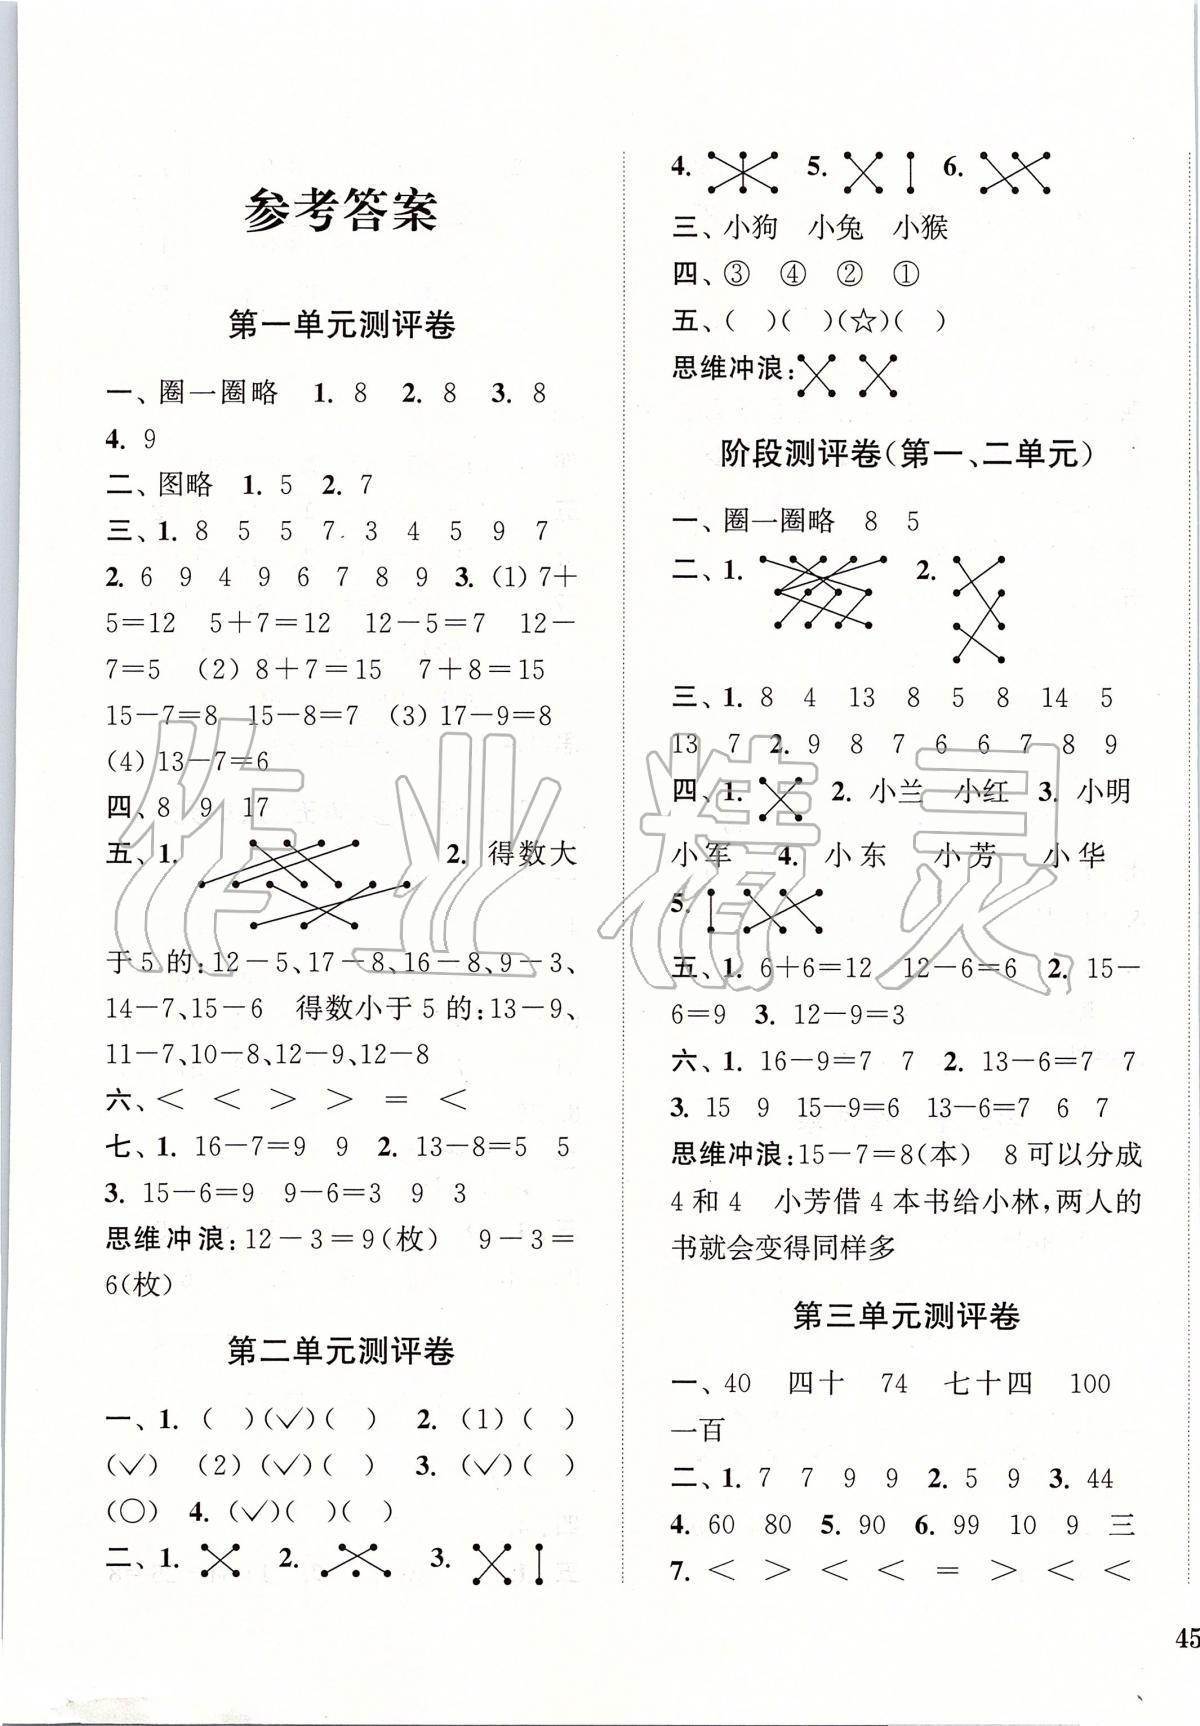 参考答案
第一单元测评卷
一、圈一圈略 1. 8 2. 8 3. 8
4. 9
二、图略 1. 5 2. 7
三、1. 8 5 5 7 3 4 5 9 7
2. 6 9 4 9 6 7 8 9 3. (1) 7+
5=12 5+7=12 12-5=7 12-
7=5 (2) 8+7=15 7+8=15
15-7=8 15-8=7 (3) 17-9=8
(4) 13-7=6
四、8 9 17
五、1. 2. 得数大
于 5 的:12-5、17-8、16-8、9-3、
14-7、15-6 得数小于 5 的:13-9、
11-7、10-8、12-9、12-8
六、< < > > = <
七、1. 16-7=9 9 2. 13-8=5 5
3. 15-6=9 9-6=3 9 3
思维冲浪:12-3=9(枚) 9-3=
6(枚)
第二单元测评卷
一、1. ( )(✓)( ) 2. (1) ( )
(✓) (2) (✓)( ) 3. (✓)( )
(○) 4. (✓)( )( )
二、1. 2. 3.
4. 5. 6.
三、小狗 小兔 小猴
四、③ ④ ② ①
五、( )( )(☆)( )
思维冲浪:
阶段测评卷(第一、二单元)
一、圈一圈略 8 5
二、1. 2.
三、1. 8 4 13 8 5 8 14 5
13 7 2. 9 8 7 6 6 7 8 9
四、1. 2. 小兰 小红 3. 小明
小军 4. 小东 小芳 小华
5.
五、1. 6+6=12 12-6=6 2. 15-
6=9 3. 12-9=3
六、1. 16-9=7 7 2. 13-6=7 7
3. 15 9 15-9=6 13-6=7 6 7
思维冲浪:15-7=8(本) 8 可以分成
4 和 4 小芳借 4 本书给小林,两人的
书就会变得同样多
第三单元测评卷
一、40 四十 74 七十四 100
一百
二、1. 7 7 9 9 2. 5 9 3. 44
4. 60 80 5. 90 6. 99 10 9 三
7. < > < < = > < <
45
作业精灵